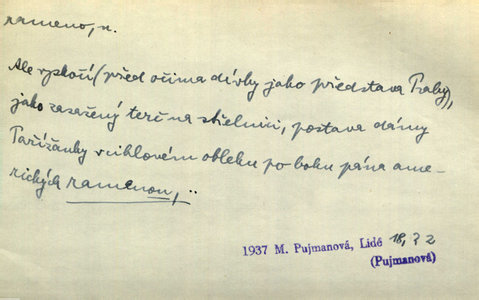 rameno, n.
Ale vyskočí (před očima dívky jako představa Prahy),
jako zasažený terč na střelnici, postava dámy
Pařížanky v obleku po boku pána ame-
rických ramenou, ..
1937 M. Pujmanová, Lidé 18, 22
(Pujmanová)